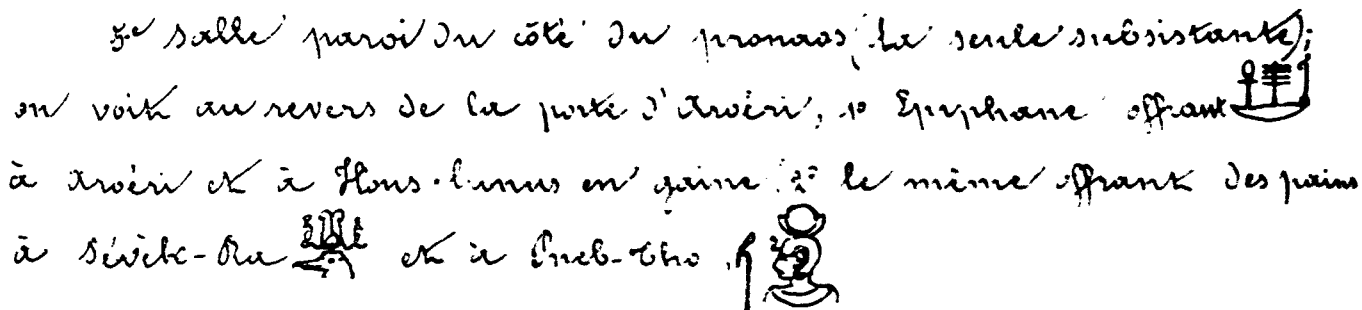 5e salle paroi du côté du pronaos (la seule subsistante);
on voit au revers de la porte d'Aroéri, 1º Epiphane offrant
à Aroéri et à Hons-lunus en gaine 2º le même offrant des pains
à Sévék-Ra et à Pneb-tho,